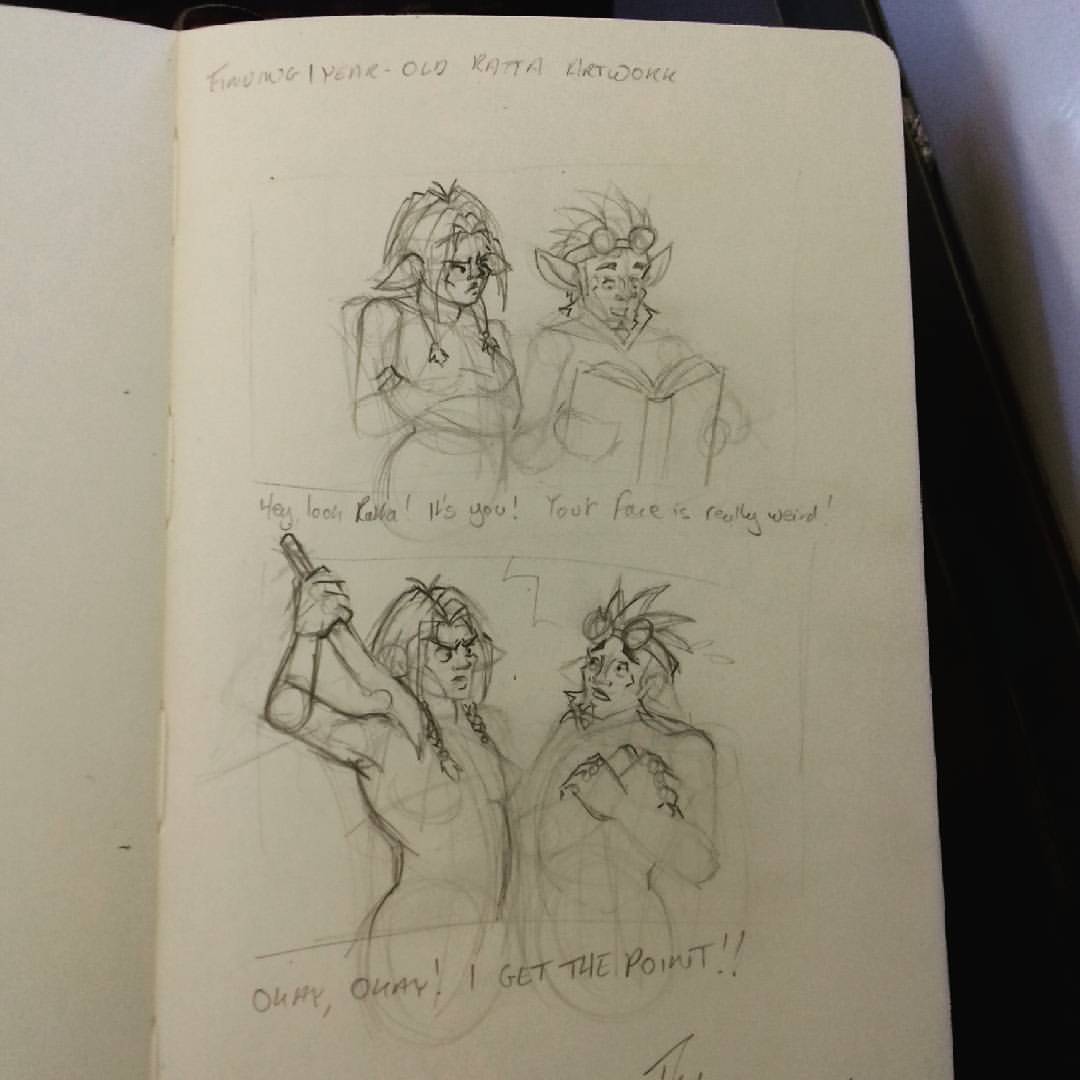 FINDING 1 YEAR-OLD RATTA ARTWORK
Hey, look Ratta! It's you! Your face is really weird!
OKAY, OKAY! I GET THE POINT!!